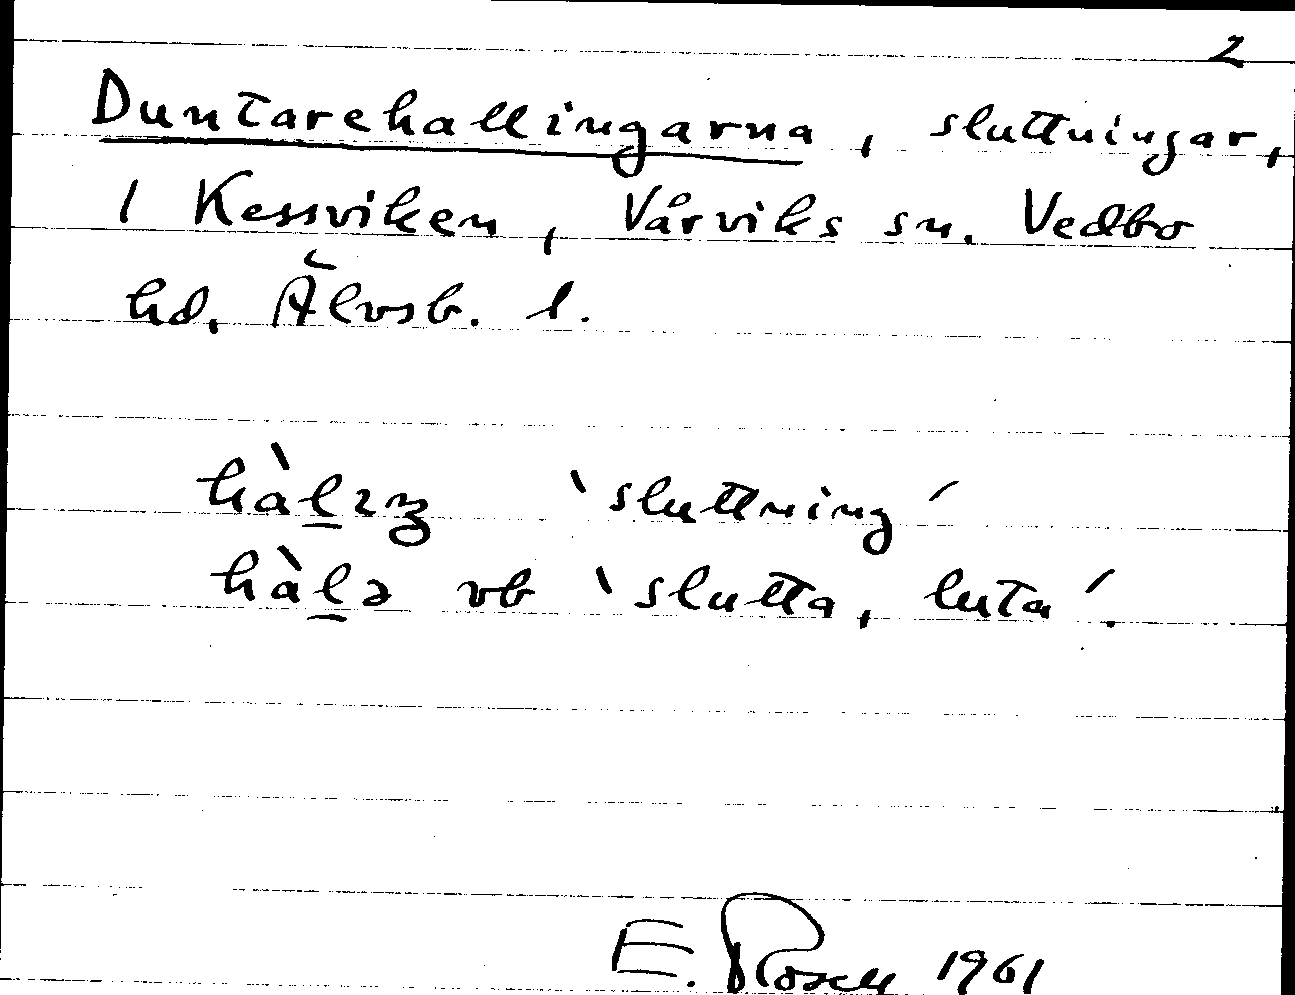 2
Duntarehallingarna, sluttningar,
i Kessviken, Vårviks sn. Vedbo
hd, Älvsb. l.
hàl̲ɪŋ ‵sluttning′
hàl̲ə vb ‵slutta, luta′.
E. Rosell 1961